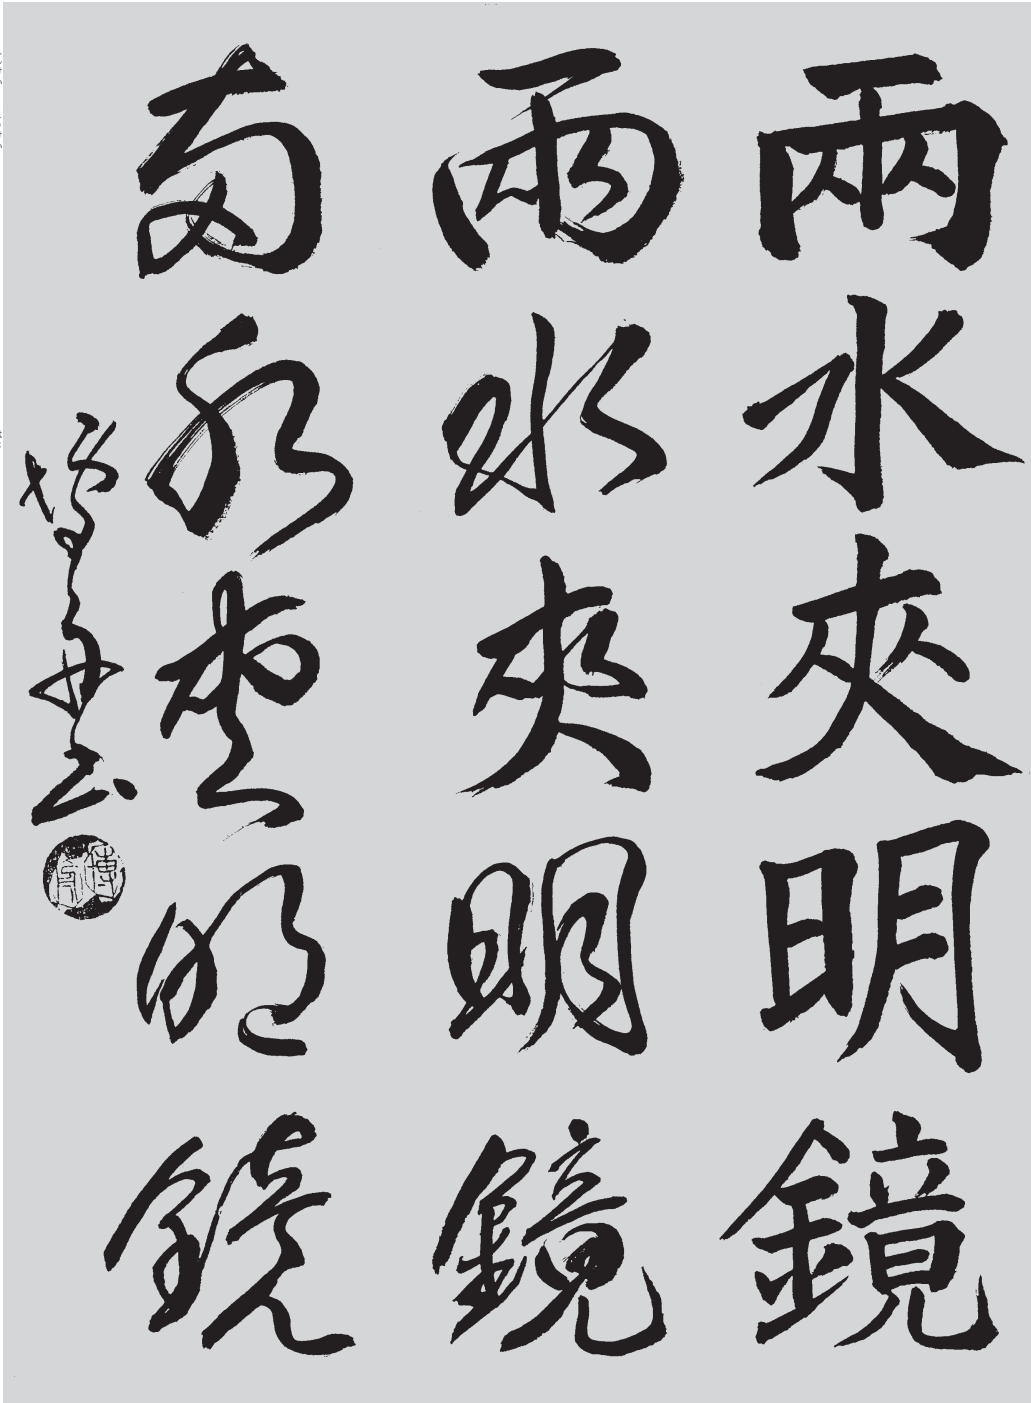 兩水夾明鏡
兩水夾明鏡
兩水夾明鏡